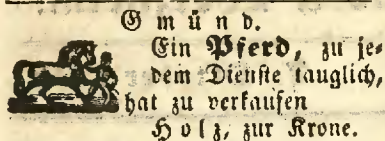 Gmünd.
Ein Pferd, zu je⸗
dem Dienste tauglich,
hat zu verkaufen
Holz, zur Krone.